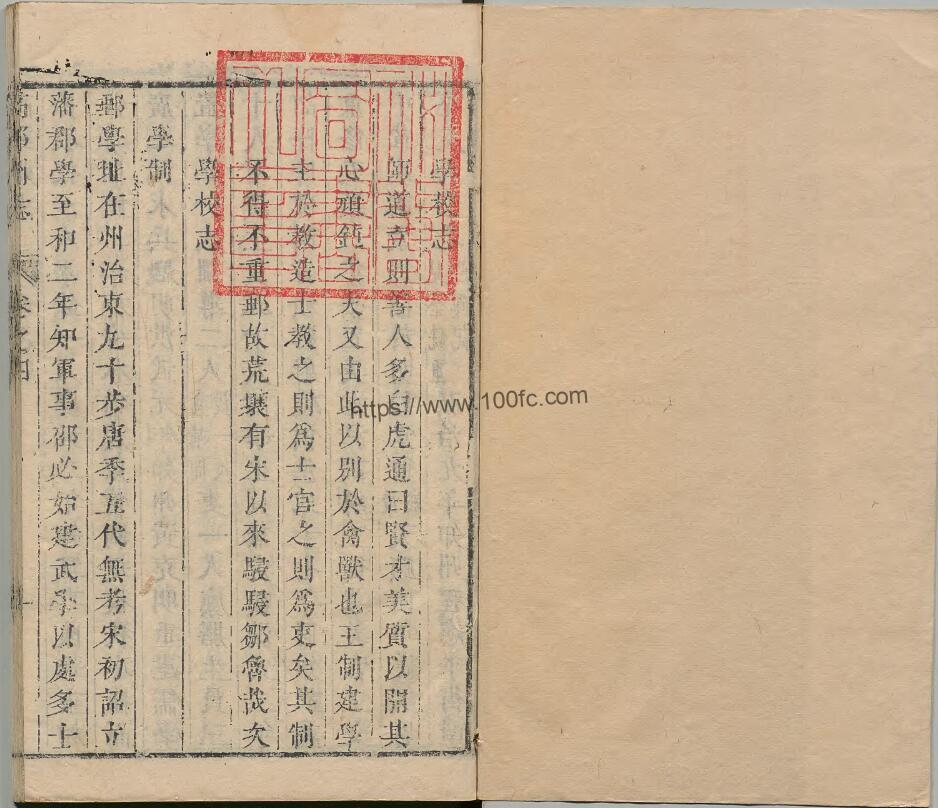 學校志
師道立則善人多白虎通曰賢才美質以開其
心頑鈍之夫又由此以別於禽獸也王制建學
主於教造士教之則爲士官之則爲吏矣其制
不得不重郵故荒壤有宋以來駸駸鄒魯哉次
學校志
學制
郵學址在州治東九十步唐季五代無考宋初詔立
藩郡學至和二年知軍事邵必始建武學以處多士
高郵州志 卷之四 一
https://www.100fc.com